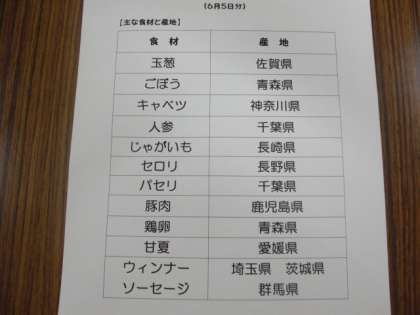 (6月5日分)
【主な食材と産地】
食 材 産 地
玉葱 佐賀県
ごぼう 青森県
キャベツ 神奈川県
人参 千葉県
じゃがいも 長崎県
セロリ 長野県
パセリ 千葉県
豚肉 鹿児島県
鶏卵 青森県
甘夏 愛媛県
ウィンナー 埼玉県 茨城県
ソーセージ 群馬県